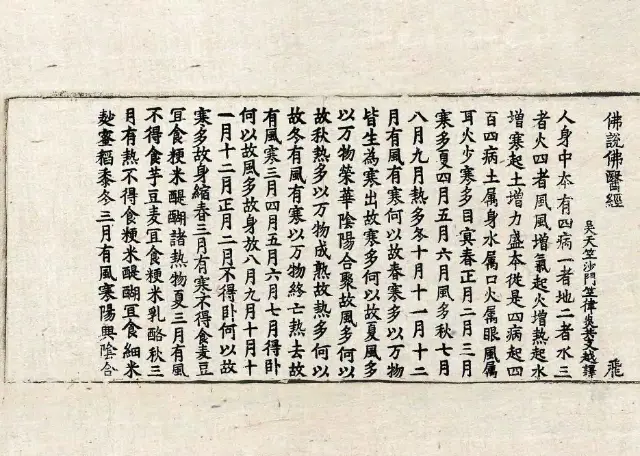 佛說佛醫經 飛
吴天竺沙門竺律炎共支越譯
人身中夲有四病一者地二者水三
者火四者風風增氣起火增熱起水
增寒起土增力盛夲從是四病起四
百四病土属身水属口火属眼風属
耳火少寒多目冥春正月二月三月
寒多夏四月五月六月風多秋七月
八月九月熱多冬十月十一月十二
月有風有寒何以故春寒多以万物
皆生為寒出故寒多何以故夏風多
以万物榮華陰陽合聚故風多何以
故秋熱多以万物成熟故熱多何以
故冬有風有寒以万物終亡熱去故
有風寒三月四月五月六月七月得卧
何以故風多故身放八月九月十月十
一月十二月正月二月不得卧何以故
寒多故身縮春三月有寒不得食麦豆
冝食粳米醍醐諸熱物夏三月有風
不得食芋豆麦冝食粳米乳酪秋三
月有熱不得食粳米醍醐冝食細米
麨蜜稻黍冬三月有風寒陽興陰合